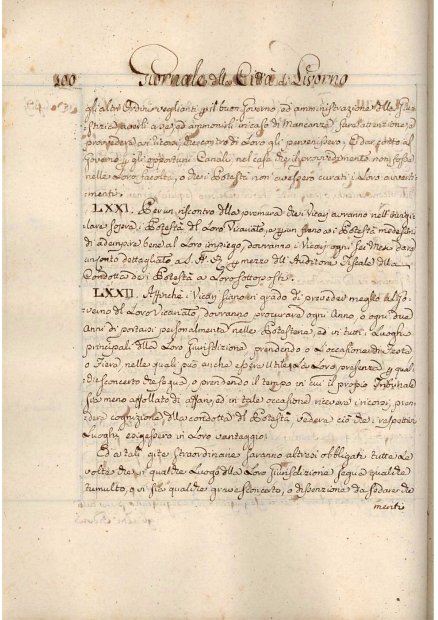 100 Giornale della Città di Livorno
gli altri Ordini veglianti per il buon Governo, ed amministrazione della Giu-
stizia Civile, ed ammonirli in caso di Mancanza, farà attenzione, e
provvedere a riscontro di Loro gli
Governo per gli opportuni Canali nel caso che il provvedimento non fosse
nelle Loro facoltà, o che i Potestà non avessero curati i Loro avverti-
menti.
LXXI. Per un riscontro della premura che i Vicarj avranno nell'
lare sopra i Potestà del Loro Vicariato, e per un freno a i Potestà medesimi
di adempire bene al Loro impiego, dovranno i Vicarj ogni sei Mesi dare
un conto dettagliato a S. A. R. per mezzo dell'Auditore Fiscale della
Condotta dei Potestà a Loro sottoposti.
LXXII. Affinchè i Vicarj siano in grado di provveder meglio al Go-
verno del Loro Vicariato, dovranno procurare ogni Anno o ogni due
Anni di portarsi personalmente nelle Potesterie, ed in tutti i Luoghi
principali della Loro Giurisdizione prendendo o L'occasione di Feste
o Fiere, nelle quali può anche essere Utile La Loro presenza per qual-
che sconcerto che segua, o prendendo il tempo in cui il proprio Tribunale
sia meno affollato di affari, ed in tale occasione ricevere i ricorsi, pren-
dere cognizione della condotta del Potestà, vedere ciò che i respettivi
Luoghi esigessero in Loro vantaggio.
Ed a tali gite straordinarie saranno altresì obbligati tutte le
volte che in qualche Luogo della Loro Giurisdizione segua qualche
tumulto, o vi sia qualche grave sconcerto, o dissenzione da sedare che
meriti